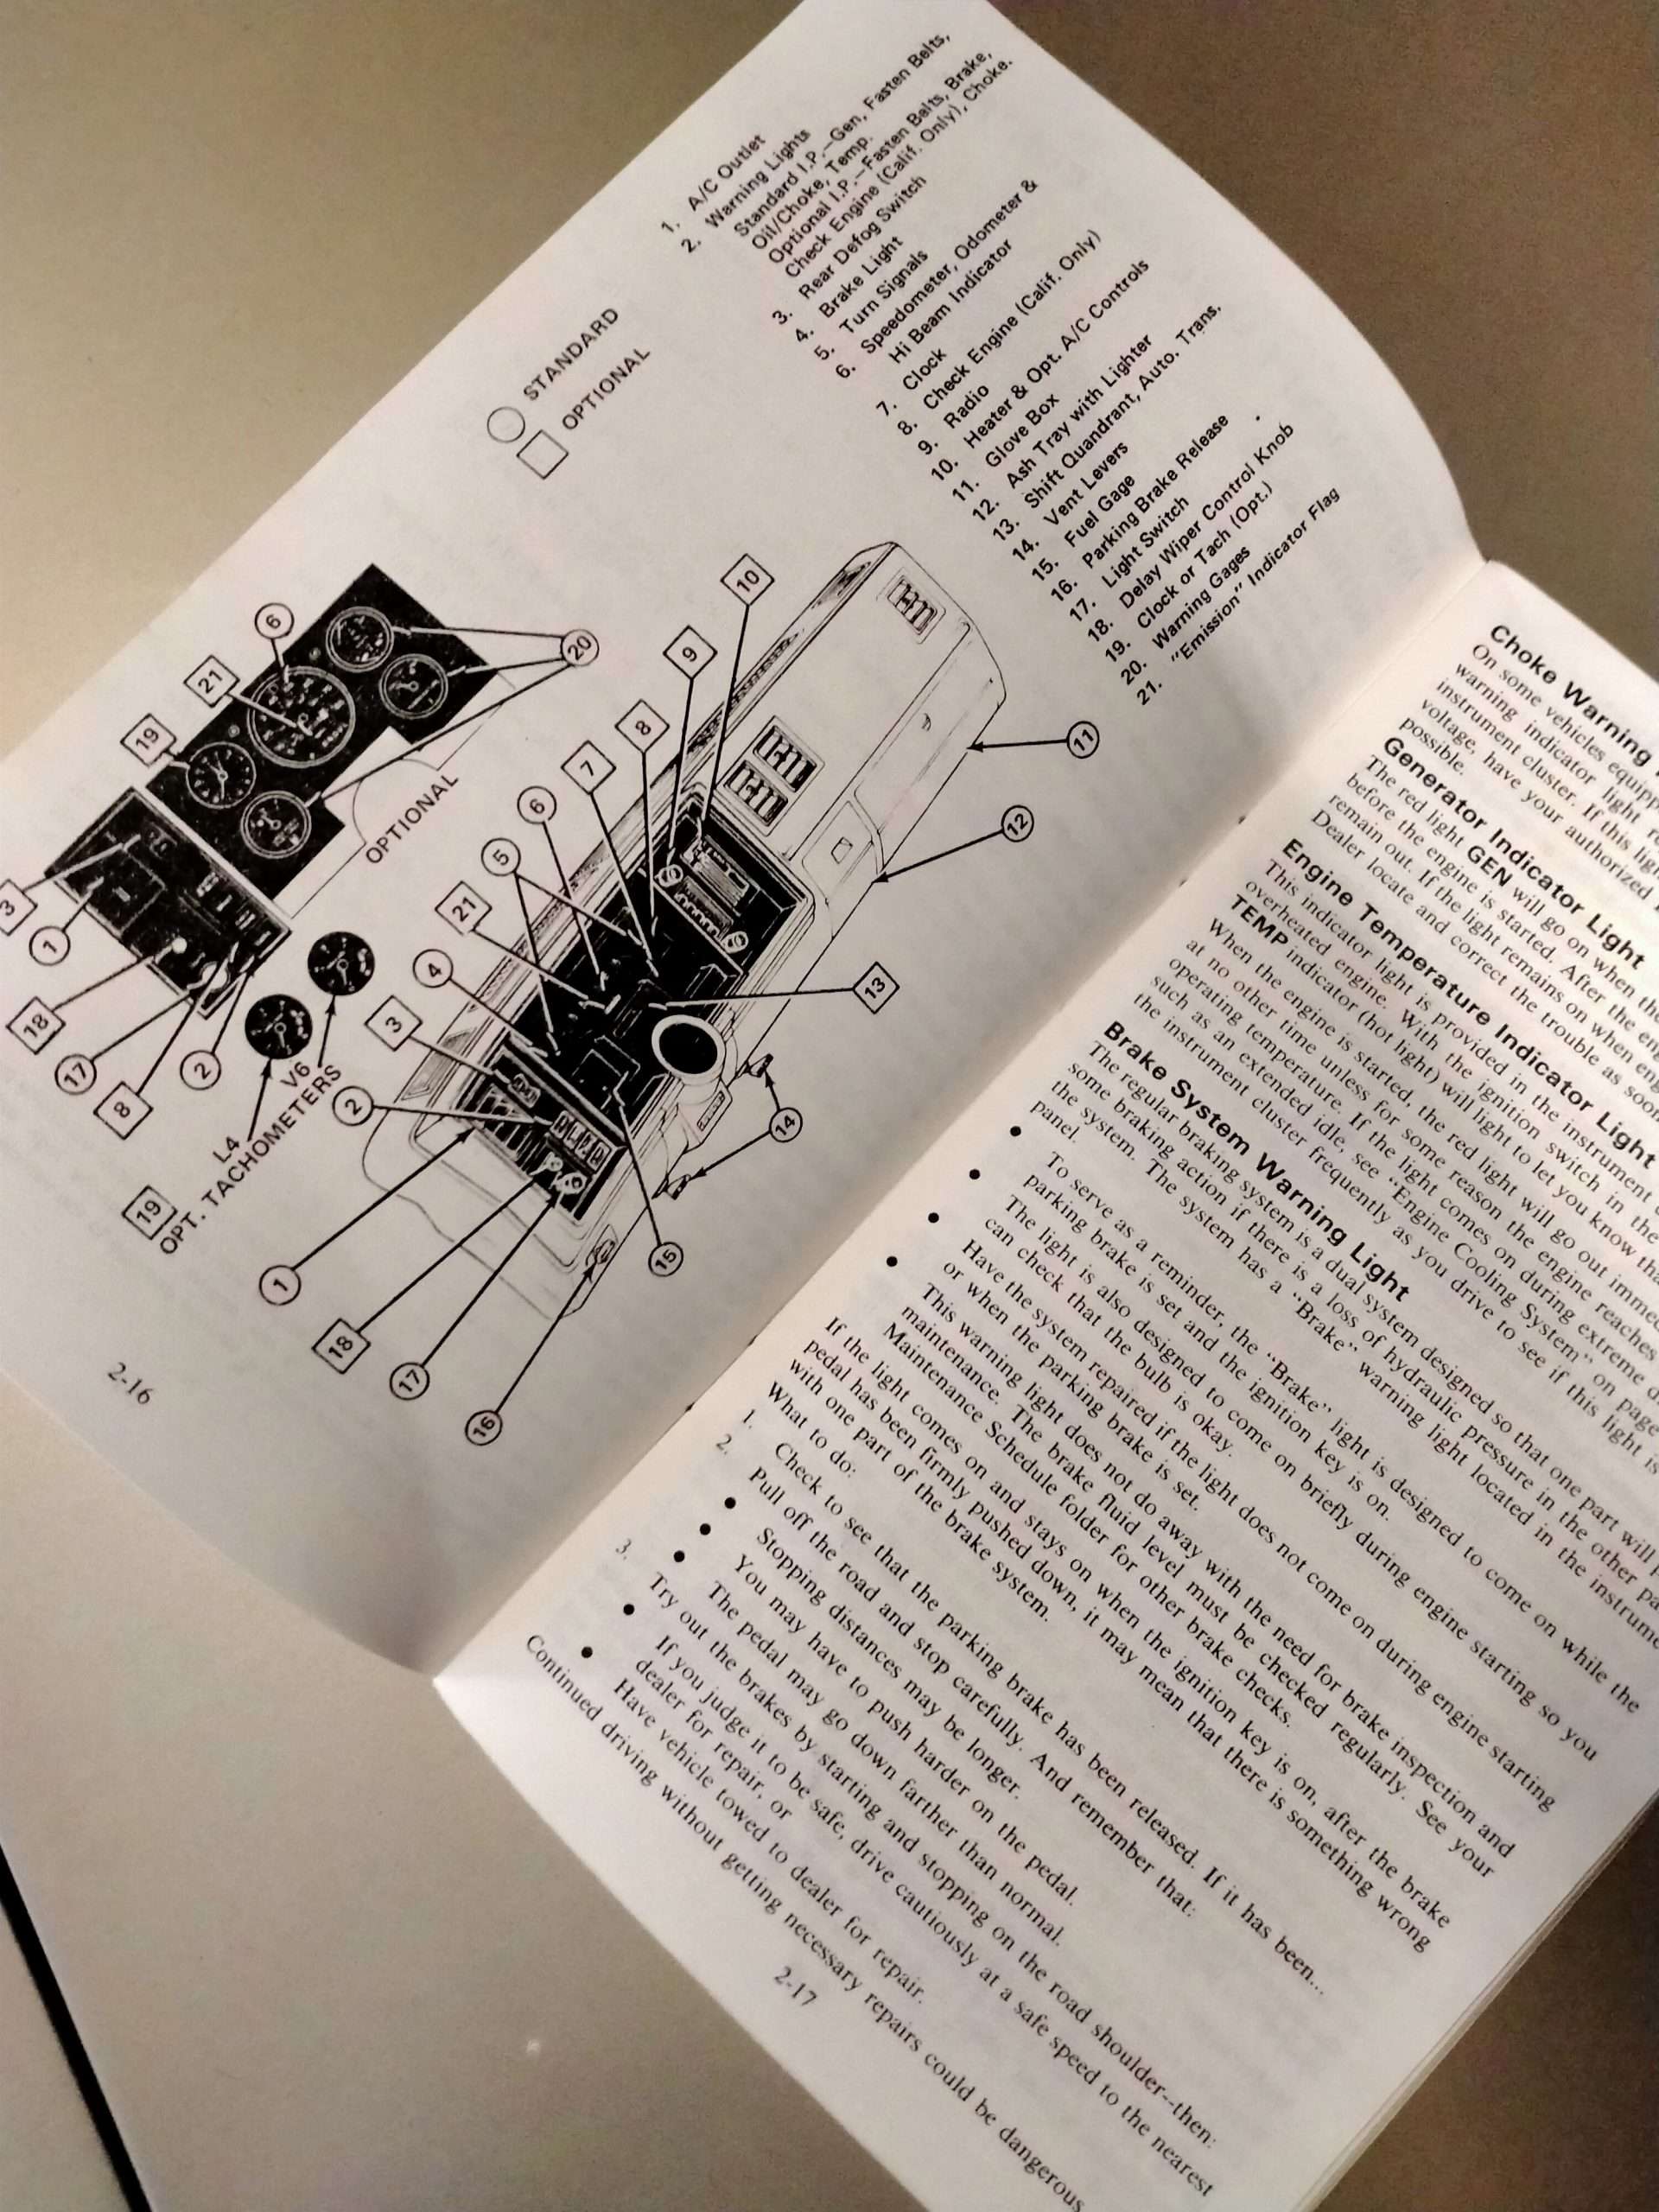 STANDARD
OPTIONAL
1. A/C Outlet
2. Warning Lights
Standard I.P.—Gen, Fasten Belts,
Oil/Choke, Temp.
Optional I.P.—Fasten Belts, Brake,
Check Engine (Calif. Only), Choke.
3. Rear Defog Switch
4. Brake Light
5. Turn Signals
6. Speedometer, Odometer &
Hi Beam Indicator
7. Clock
8. Check Engine (Calif. Only)
9. Radio
10. Heater & Opt. A/C Controls
11. Glove Box
12. Ash Tray with Lighter
13. Shift Quandrant, Auto. Trans.
14. Vent Levers
15. Fuel Gage
16. Parking Brake Release
17. Light Switch
18. Delay Wiper Control Knob
19. Clock or Tach (Opt.)
20. Warning Gages
21. "Emission" Indicator Flag
6
21
19
20
3
1
18
17
8
2
OPTIONAL
L4
V6
19
OPT. TACHOMETERS
10
9
8
7
6
5
21
4
3
2
11
12
13
14
1
18
17
16
15
2-16
Choke Warning
On some vehicles equipp
warning indicator light
instrument cluster. If this ligh
voltage, have your authorized
possible.
Generator Indicator Light
The red light GEN will go on when the
before the engine is started. After the eng
remain out. If the light remains on when eng
Dealer locate and correct the trouble as soon
Engine Temperature Indicator Light
This indicator light is provided in the instrument
overheated engine. With the ignition switch in the
TEMP indicator (hot light) will light to let you know tha
When the engine is started, the red light will go out immed
at no other time unless for some reason the engine reaches
operating temperature. If the light comes on during extreme
such as an extended idle, see "Engine Cooling System" on page
the instrument cluster frequently as you drive to see if this light is
Brake System Warning Light
The regular braking system is a dual system designed so that one part will
some braking action if there is a loss of hydraulic pressure in the other pa
the system. The system has a "Brake" warning light located in the instrume
panel.
• To serve as a reminder, the "Brake" light is designed to come on while the
parking brake is set and the ignition key is on.
• The light is also designed to come on briefly during engine starting so you
can check that the bulb is okay.
• Have the system repaired if the light does not come on during engine starting
or when the parking brake is set.
• This warning light does not do away with the need for brake inspection and
maintenance. The brake fluid level must be checked regularly. See your
Maintenance Schedule folder for other brake checks.
If the light comes on and stays on when the ignition key is on, after the brake
pedal has been firmly pushed down, it may mean that there is something wrong
with one part of the brake system.
What to do:
1. Check to see that the parking brake has been released. If it has been...
2. Pull off the road and stop carefully. And remember that:
• Stopping distances may be longer.
• You may have to push harder on the pedal.
• The pedal may go down farther than normal.
3. Try out the brakes by starting and stopping on the road shoulder--then:
• If you judge it to be safe, drive cautiously at a safe speed to the nearest
dealer for repair, or
• Have vehicle towed to dealer for repair.
Continued driving without getting necessary repairs could be dangerous
2-17